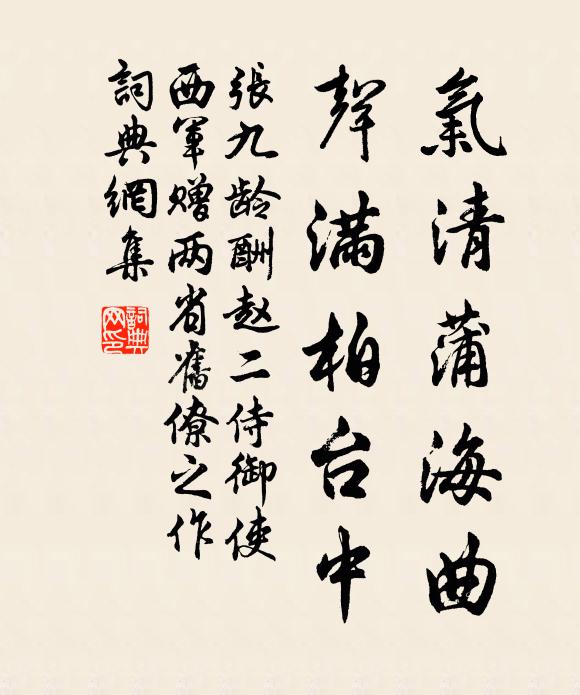 氣清蒲海曲
聲滿柏台中
張九龄酬赵二侍御使
西軍赠两省舊僚之作
詞典網集
詞典网印